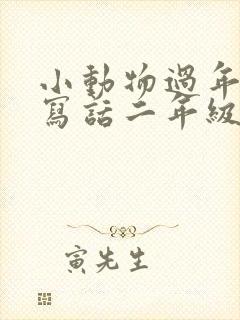 小動物過年
寫話二年級
寅先生